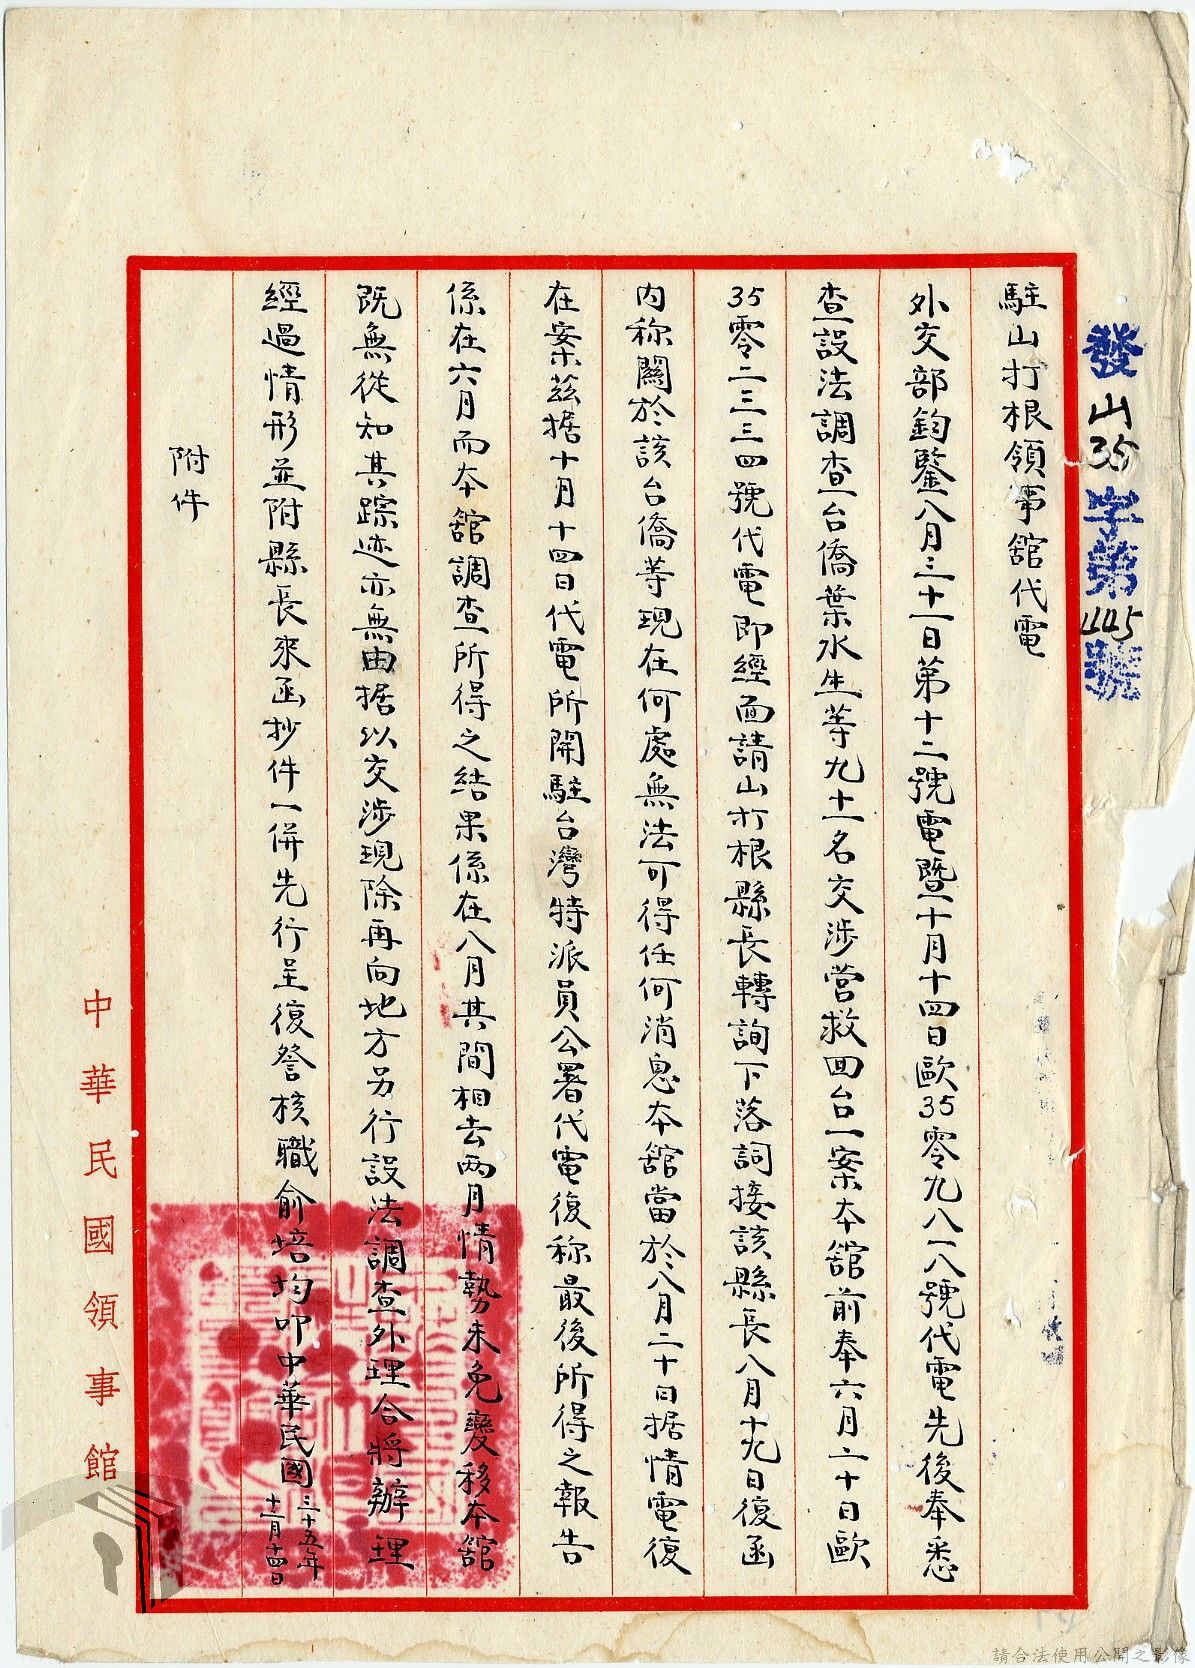 發山35字第1145號
駐山打根領事舘代電
外交部鈞鑒八月三十一日第十二號電暨十月十四日歐35零九八一八號代電先後奉悉
查設法調查台僑葉水生等九十一名交涉營救回台一案本舘前奉六月二十日歐
35零二三三四號代電即經面請山打根縣長轉詢下落詞接該縣長八月十九日復函
內称關於該台僑等現在何處無法可得任何消息本舘當於八月二十日据情電復
在案茲据十月十四日代電所開駐台灣特派員公署代電復称最後所得之報告
係在六月而本舘調查所得之結果係在八月其間相去兩月情勢未免變移本舘
既無從知其踪迹亦無由据以交涉現除再向地方另行設法調查外理合將辦理
經過情形並附縣長來函抄件一併先行呈復詧核職俞培均叩中華民國三十五年十一月十四日
附件
中華民國領事館
請合法使用公開之影像